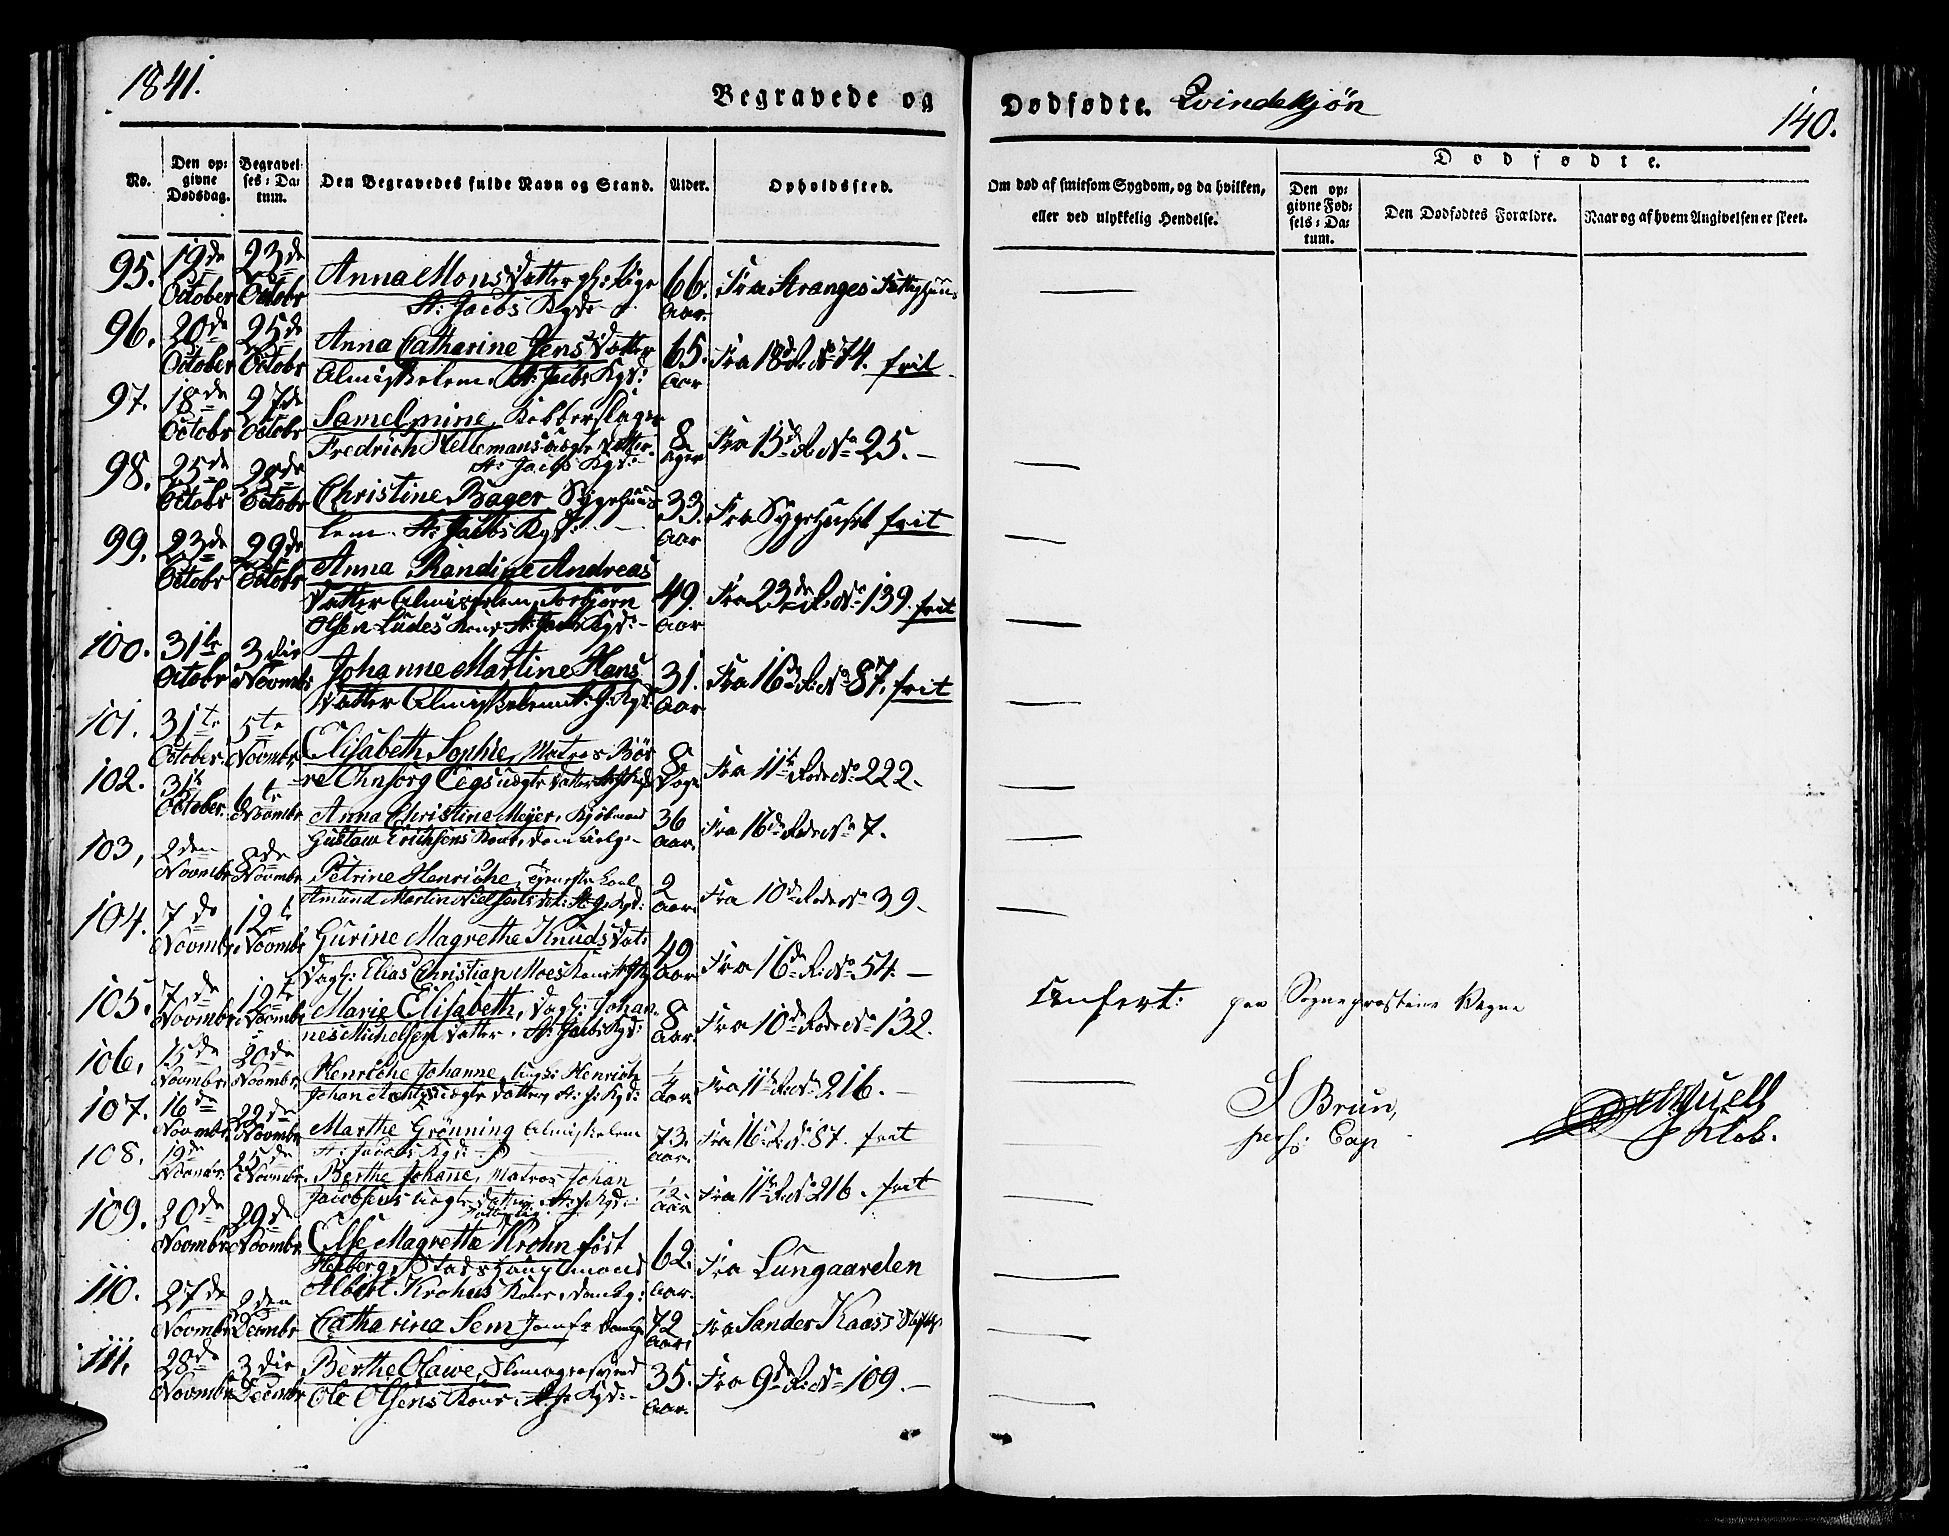 1841.
Begravede og
Dødfødte. Qvindekjøn
140.
No.
Den op:
givne
Dødsdag.
Begravel-
ses: Da-
tum.
Den Begravedes fulde Navn og Stand.
Alder.
Opholdssted.
Om død af smitsom Sygdom, og da hvilken,
eller ved ulykkelig Hendelse.
Dødfødte.
Den op-
givne Fød-
sels: Da-
tum.
Den Dødfødtes Forældre.
Naar og af hvem Angivelsen er skeet.
95. 19de October 23de Octobr Anna Mons Datter
St: Jacobs Kgd: 66. Aar. Fra Stranges Fattighuus
96. 20de October 25de Octobr Anna Catharine Jens Datter
Almisselem St: Jacbs Kgd: 65. Aar Fra 18de R: No 74. frit
97. 18de Octobr 27de Octobr Samelmine, Kobberslager
Fredrich Hellemans uægte Datter.
St: Jacbs Kgd: 8 Uger Fra 15de R: No 25.
98. 25de Octobr 28de Octobr Christine Bager Sygehuus
lem. St: Jacbs Kgd: 33. Aar Fra Sygehuset frit
99. 23de Octobr 29de Octobr Anna Randine Andreas
Datter Almisselem Torbjørn
Olsen Ludes Kone St: Jacbs Kgd: 49. Aar Fra 23de R: No 139. frit
100. 31te Octobr 3die Novmbr Johanne Martine Hans
Datter Almisselem St: J: Kgd: 31. Aar Fra 16de R: No 87. frit
101. 31te October 5te Novmbr Elisabeth Sophie, Matros Bør
re Ohnsorg Eegs uægte Datter 8 Dage Fra 11te Rode No 222.
102. 31te October. 6te Novmbr Anna Christine Meyer, Kjøbmand
Gustaw Erichsens Kone, 36 Aar. Fra 16de Rode No 7.
103, 2den Novmbr 8de Novmbr Petrine Henriche,
Amund Martin Nielsens Dat: St: J: Kgd: 2 Aar. Fra 10de Rode No 39.
104. 7de Novmbr 12te Novmbr Gurine Magrethe Knuds Dat:
Dagl: Elias Christian Moes Kone 49 Aar Fra 16de R: No 54.
105. 7de Novmbr 12te Novmbr Marie Elisabeth, Dagl: Johan-
nes Michelsen Datter. St: Jacbs Kgd: 8 Aar. Fra 10de Rode No 132.
Confert: paa Sogneprestens Vegne
106, 15de Novmbr 20de Novmbr. Henriche Johanne, Henrich
Johan uægte Datter St: J: Kgd: ¼ Aar. Fra 11te R: No 216.
J Brun,
pers: Cap
Klok.
107. 16de Novmbr 22de Novmbr Marthe Grønning Almisselem
St: Jacobs Kgd: 73. Aar. Fra 16de R: No 87. frit
108. 19de Novmbr: 25de Novmbr. Berthe Johane, Matros Johan
Jacobsens uægte Datter St: J: Kgd: ½ Aar Fra 11te R: No 216. frit
109. 20de Novmbr 29de Novmbr Else Magrethe Krohn født
Heiberg, Stadshauptmand
Albert Krohns Kone, 62. Aar. Fra Lungaarden
110. 27de Novmbr 2den Decmbr Catharina Sem Jomfr 72 Aar. Fra Sander Kaass Stiftelse
111. 28de Novmbr 3die Decmbr Berthe Olawe,
Ole Olsens Kone. St: J: Kgd: 35. Aar. Fra 9de R: No 109.